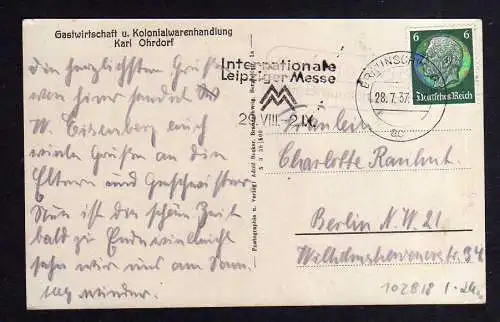 Gastwirtschaft u. Kolonialwarenhandlung
Karl Ohrdorf
Die herzlichsten Grüße
von hier sendet
W. Eisenberg auch
viele Grüße an die
Eltern und Geschwister
Nun ist die schöne Zeit
bald zu Ende vielleicht
sehn wir uns am Sonn
tag wieder.
Photographie u. Verlag: Adolf Becker,
Internationale
Leipziger Messe
MM
29.VIII.-2.IX.
BRAUNSCHWEIG
28.7.37.
6
6
Deutsches Reich
Fräulein
Charlotte Rauhut.
Berlin N.W. 21
Wilhelmshavenerstr. 34
102818